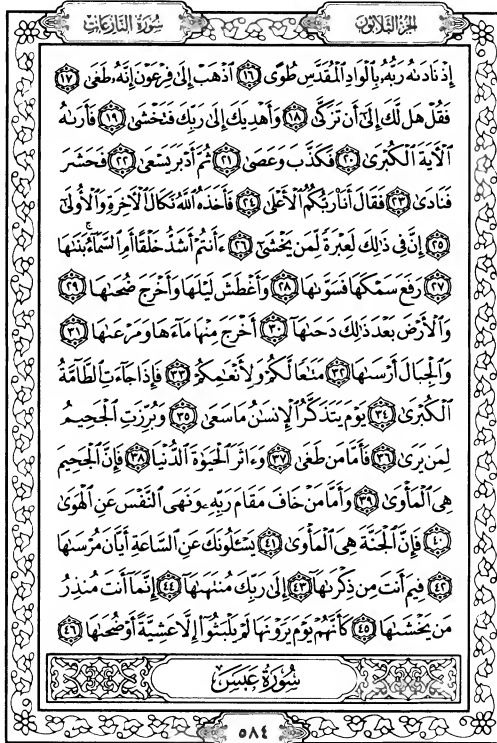 سُورَةُ النَّازِعَاتِ
الجُزْءُ الثَّلَاثُونَ
إِذْ نَادَىٰهُ رَبُّهُۥ بِٱلْوَادِ ٱلْمُقَدَّسِ طُوًى ١٦ ٱذْهَبْ إِلَىٰ فِرْعَوْنَ إِنَّهُۥ طَغَىٰ ١٧
فَقُلْ هَل لَّكَ إِلَىٰٓ أَن تَزَكَّىٰ ١٨ وَأَهْدِيَكَ إِلَىٰ رَبِّكَ فَتَخْشَىٰ ١٩ فَأَرَىٰهُ
ٱلْءَايَةَ ٱلْكُبْرَىٰ ٢٠ فَكَذَّبَ وَعَصَىٰ ٢١ ثُمَّ أَدْبَرَ يَسْعَىٰ ٢٢ فَحَشَرَ
فَنَادَىٰ ٢٣ فَقَالَ أَنَا۠ رَبُّكُمُ ٱلْأَعْلَىٰ ٢٤ فَأَخَذَهُ ٱللَّهُ نَكَالَ ٱلْءَاخِرَةِ وَٱلْأُولَىٰٓ
٢٥ إِنَّ فِى ذَٰلِكَ لَعِبْرَةً لِّمَن يَخْشَىٰٓ ٢٦ ءَأَنتُمْ أَشَدُّ خَلْقًا أَمِ ٱلسَّمَآءُ ۚ بَنَىٰهَا
٢٧ رَفَعَ سَمْكَهَا فَسَوَّىٰهَا ٢٨ وَأَغْطَشَ لَيْلَهَا وَأَخْرَجَ ضُحَىٰهَا ٢٩
وَٱلْأَرْضَ بَعْدَ ذَٰلِكَ دَحَىٰهَآ ٣٠ أَخْرَجَ مِنْهَا مَآءَهَا وَمَرْعَىٰهَا ٣١
وَٱلْجِبَالَ أَرْسَىٰهَا ٣٢ مَتَٰعًا لَّكُمْ وَلِأَنْعَٰمِكُمْ ٣٣ فَإِذَا جَآءَتِ ٱلطَّآمَّةُ
ٱلْكُبْرَىٰ ٣٤ يَوْمَ يَتَذَكَّرُ ٱلْإِنسَٰنُ مَا سَعَىٰ ٣٥ وَبُرِّزَتِ ٱلْجَحِيمُ
لِمَن يَرَىٰ ٣٦ فَأَمَّا مَن طَغَىٰ ٣٧ وَءَاثَرَ ٱلْحَيَوٰةَ ٱلدُّنْيَا ٣٨ فَإِنَّ ٱلْجَحِيمَ
هِىَ ٱلْمَأْوَىٰ ٣٩ وَأَمَّا مَنْ خَافَ مَقَامَ رَبِّهِۦ وَنَهَى ٱلنَّفْسَ عَنِ ٱلْهَوَىٰ
٤٠ فَإِنَّ ٱلْجَنَّةَ هِىَ ٱلْمَأْوَىٰ ٤١ يَسْـَٔلُونَكَ عَنِ ٱلسَّاعَةِ أَيَّانَ مُرْسَىٰهَا
٤٢ فِيمَ أَنتَ مِن ذِكْرَىٰهَآ ٤٣ إِلَىٰ رَبِّكَ مُنتَهَىٰهَآ ٤٤ إِنَّمَآ أَنتَ مُنذِرُ
مَن يَخْشَىٰهَا ٤٥ كَأَنَّهُمْ يَوْمَ يَرَوْنَهَا لَمْ يَلْبَثُوٓا۟ إِلَّا عَشِيَّةً أَوْ ضُحَىٰهَا ٤٦
سُورَةُ عَبَسَ
٥٨٤